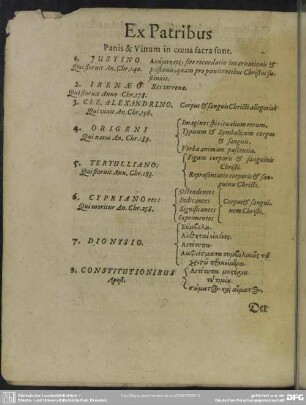 Ex Patribus
Panis & Vinum in cœna sacra sunt.
1. JUSTINO.
Qui floruit An. Chr. 140.
Ἀνάμνησις, sive recordatio incarnationis &
passionis, quam pro pœnitentibus Christus su-
stinuit.
2. IRENÆO
Qui floruit Anno Chr.
Res terrena.
3. CLE. ALEXANDRINO.
Qui vixit An. Chr.
Corpus & sanguis Christi allegoricè
4. ORIGENI
Qui natus An. Chr. 189.
Imagines spiritualium rerum.
Typicum & Symbolicum corpus
& sanguis.
Verba animam pascentia.
5. TERTULLIANO;
Qui floruit Ann. Chr.
Figura corporis & sanguinis
Christi.
Repræsentatio corporis & san-
guinis Christi.
6. CYPRIANO res:
Qui moritur An. Chr. 258.
Ostendentes
Indicantes
Significantes
Exprimentes
Corpus & sangui-
nem Christi.
7. DIONYSIO.
Σύμβολα.
Αἰσθηταὶ εἰκόνες.
Ἀντίτυπα.
8. CONSTITUTIONIBUS
Apost.
Ἀντίτυπα μυστήρια
σώματος καὶ αἵματος.
Det